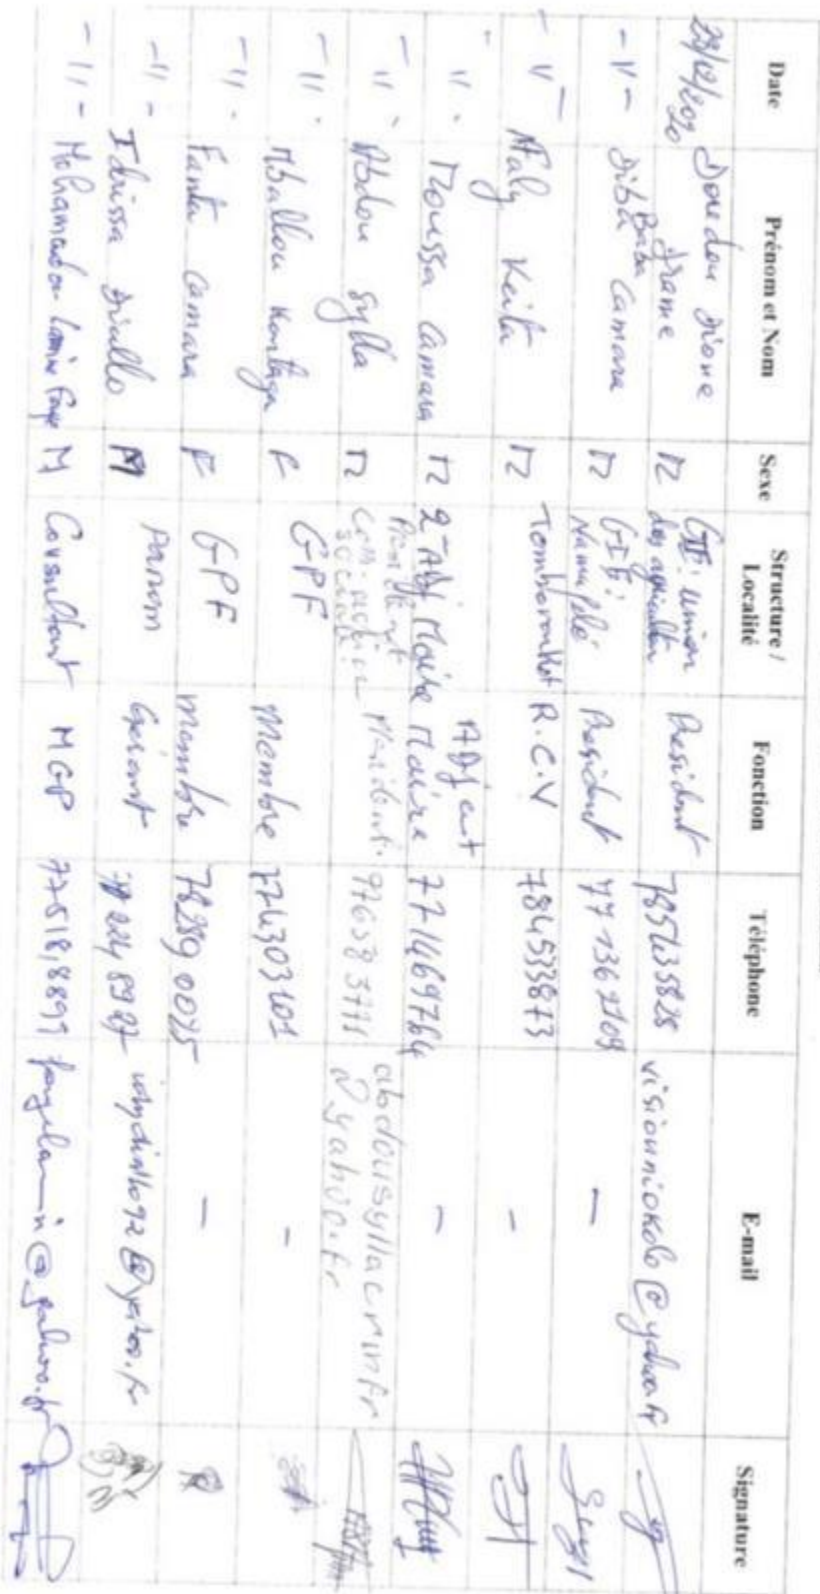 Date Prénom et Nom Sexe Structure / Localité Fonction Téléphone E-mail Signature
29/12/2020 Doudou Dione Drame M GIE: union des agriculteurs Président 785435828 visionniokolo@yahoo.fr
-11- Diba Baba Camara M GIE: Président 77 1367109 -
-11- Naly Keita M R.C.V 784533873 -
-11- Moussa Camara M 2e Adj Maire Adj ent Maire 771469764 -
-11- Abdou Sylla M Président com. action sociale Président 976583771 abdousyllacrmnfr @yahoo.fr
-11- Mballou Kontaga F GPF Membre 774303401 -
-11- Fanta Camara F GPF Membre 78289 0075 -
-11- Idrissa Diallo M Gérant 224 89 27
-11- Mohamadou Lamine Faye M Consultant MGP 775188899